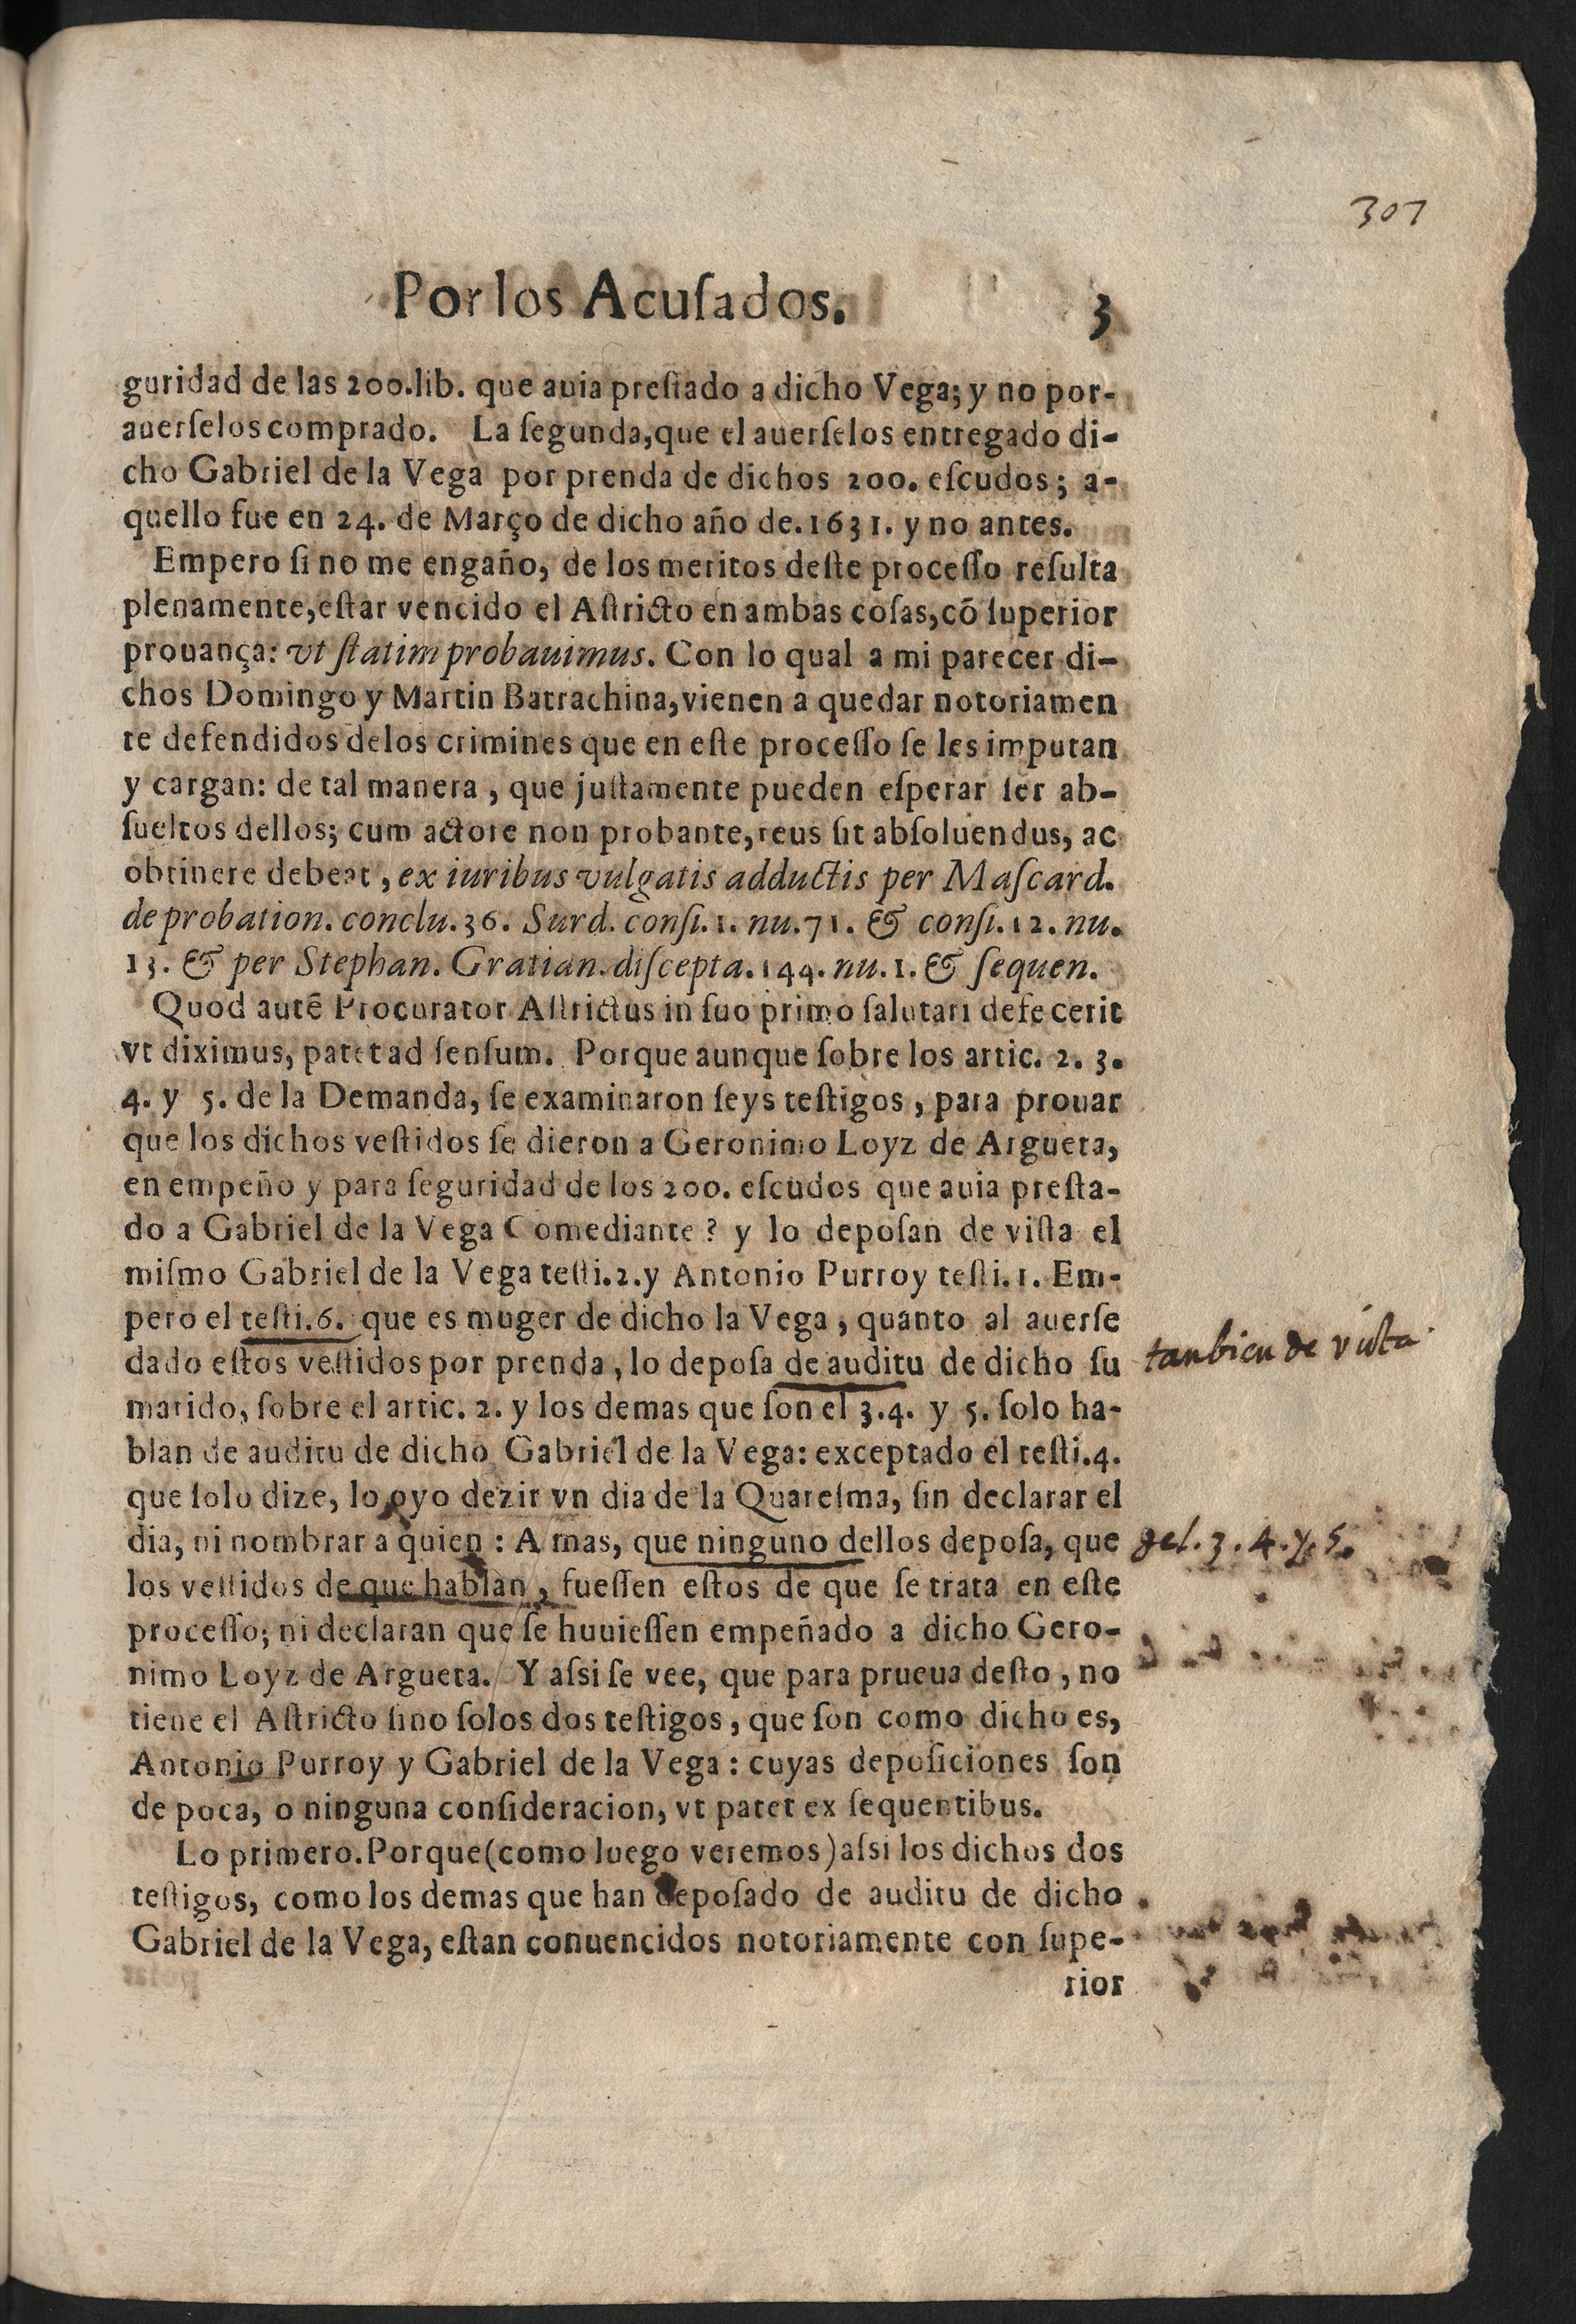 307
Por los Acuſados. 3
guridad de las 200.lib. que auia preſtado a dicho Vega; y no por-
auerſelos comprado. La ſegunda,que el auerſelos entregado di-
cho Gabriel de la Vega por prenda de dichos 200. eſcudos; a-
quello fue en 24. de Março de dicho año de.1631. y no antes.
Empero ſi no me engaño, de los meritos deſte proceſſo reſulta
plenamente,eſtar vencido el Aſtricto en ambas coſas,cō ſuperior
prouança: vt ſtatim probauimus. Con lo qual a mi parecer di-
chos Domingo y Martin Barrachina,vienen a quedar notoriamen
te defendidos delos crimines que en eſte proceſſo ſe les imputan
y cargan: de tal manera , que juſtamente pueden eſperar ſer ab-
ſueltos dellos; cum actore non probante,reus ſit abſoluendus, ac
obtinere debeat , ex iuribus vulgatis adductis per Maſcard.
de probation. conclu.36. Surd. conſi.1. nu.71. & conſi.12. nu.
13. & per Stephan. Gratian.diſcepta.144. nu.1. & ſequen.
Quod autē Procurator Aſtrictus in ſuo primo ſalutari defecerit
vt diximus, patet ad ſenſum. Porque aunque ſobre los artic. 2. 3.
4. y 5. de la Demanda, ſe examinaron ſeys teſtigos , para prouar
que los dichos veſtidos ſe dieron a Geronimo Loyz de Argueta,
en empeño y para ſeguridad de los 200. eſcudos que auia preſta-
do a Gabriel de la Vega Comediante ? y lo depoſan de viſta el
miſmo Gabriel de la Vega teſti.2.y Antonio Purroy teſti.1. Em-
pero el teſti.6. que es muger de dicho la Vega , quanto al auerſe
dado eſtos veſtidos por prenda , lo depoſa de auditu de dicho ſu
tanbien de viſta
marido, ſobre el artic. 2. y los demas que ſon el 3.4. y 5. ſolo ha-
blan de auditu de dicho Gabriel de la Vega: exceptado el teſti.4.
que ſolo dize, lo oyo dezir vn dia de la Quareſma, ſin declarar el
dia, ni nombrar a quien : A mas, que ninguno dellos depoſa, que
3. 4. y 5.
los veſtidos de que hablan , fueſſen eſtos de que ſe trata en eſte
proceſſo; ni declaran que ſe huuieſſen empeñado a dicho Gero-
nimo Loyz de Argueta. Y aſsi ſe vee, que para prueua deſto , no
tiene el Aſtricto ſino ſolos dos teſtigos , que ſon como dicho es,
Antonio Purroy y Gabriel de la Vega : cuyas depoſiciones ſon
de poca, o ninguna conſideracion, vt patet ex ſequentibus.
Lo primero.Porque(como luego veremos)aſsi los dichos dos
teſtigos, como los demas que han depoſado de auditu de dicho
Gabriel de la Vega, eſtan conuencidos notoriamente con ſupe-
rior